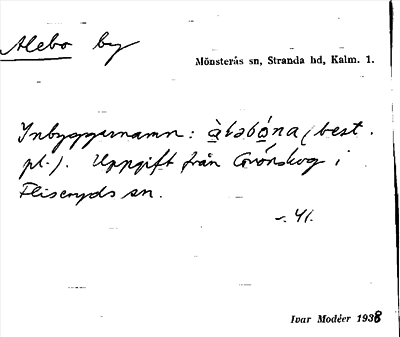 Alebo by
Mönsterås sn, Stranda hd, Kalm. 1.
Inbyggarnamn: àləbo̲na (best.
pl.). Uppgift från Grönskog i
Fliseryds sn.
-. 41.
Ivar Modéer 1938